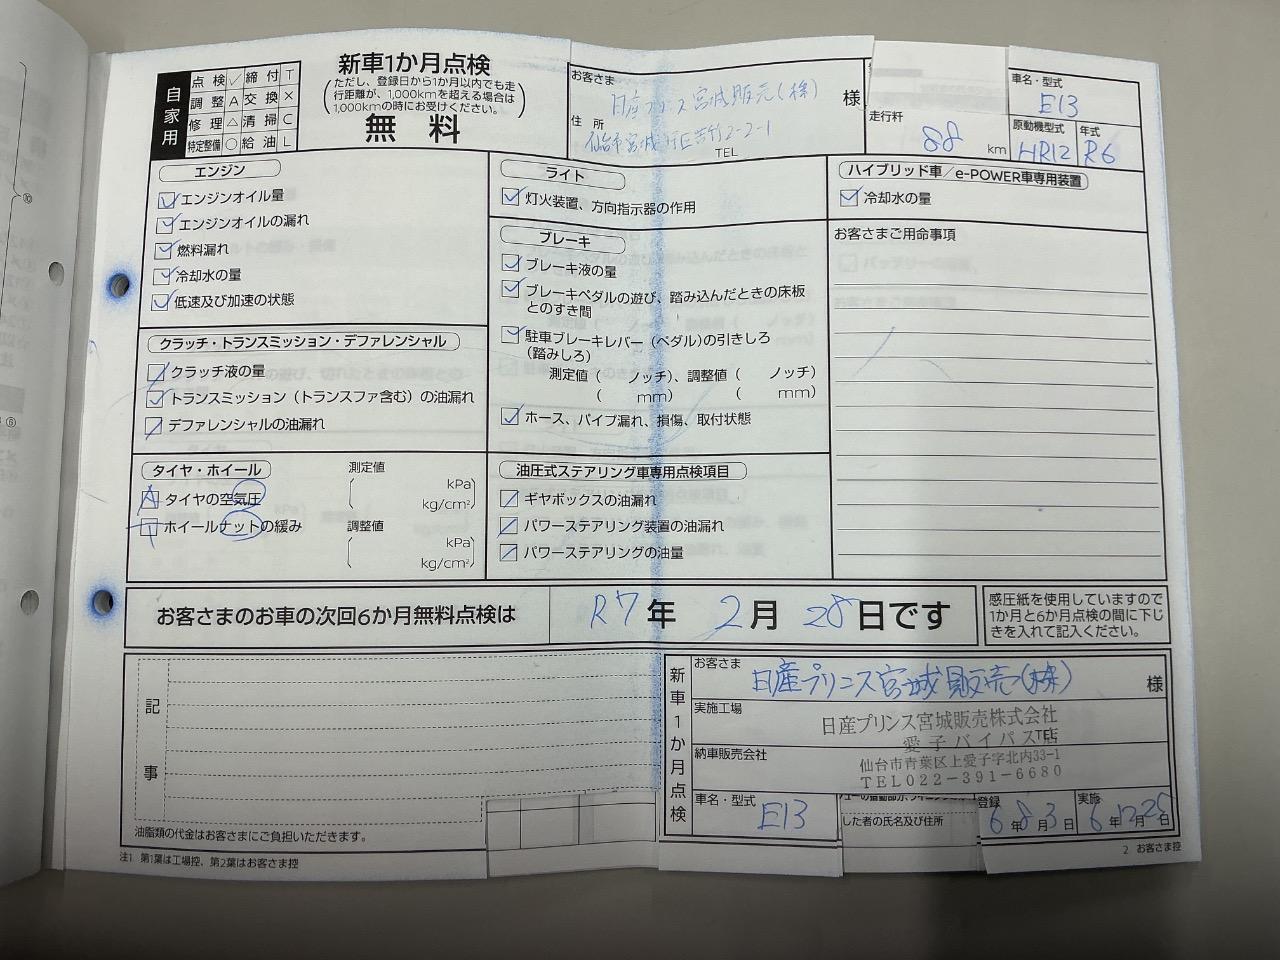 自家用
点検 ✓ 締付 T
調整 A 交換 ×
修理 △ 清掃 C
特定整備 ○ 給油 L
新車1か月点検
(ただし、登録日から1か月以内でも走
行距離が、1,000kmを超える場合は
1,000kmの時にお受けください。)
無料
お客さま
日産プリンス宮城販売(株) 様
住所
仙台市宮城野区苦竹2-2-1
TEL
走行粁
88 km
車名・型式
E13
原動機型式
HR12
年式
R6
エンジン
エンジンオイル量
エンジンオイルの漏れ
燃料漏れ
冷却水の量
低速及び加速の状態
クラッチ・トランスミッション・デファレンシャル
クラッチ液の量
トランスミッション(トランスファ含む)の油漏れ
デファレンシャルの油漏れ
タイヤ・ホイール
タイヤの空気圧
ホイールナットの緩み
測定値
( kPa
kg/cm²)
調整値
( kPa
kg/cm²)
ライト
灯火装置、方向指示器の作用
ブレーキ
ブレーキ液の量
ブレーキペダルの遊び、踏み込んだときの床板
とのすき間
駐車ブレーキレバー(ペダル)の引きしろ
(踏みしろ)
測定値( ノッチ)、調整値( ノッチ)
( mm) ( mm)
ホース、パイプ漏れ、損傷、取付状態
油圧式ステアリング車専用点検項目
ギヤボックスの油漏れ
パワーステアリング装置の油漏れ
パワーステアリングの油量
ハイブリッド車/e-POWER車専用装置
冷却水の量
お客さまご用命事項
お客さまのお車の次回6か月無料点検は R7年 2月 28日です
感圧紙を使用していますので
1か月と6か月点検の間に下じ
きを入れて記入ください。
記事
油脂類の代金はお客さまにご負担いただきます。
注1 第1葉は工場控、第2葉はお客さま控
新車1か月点検
お客さま
日産プリンス宮城販売(株) 様
実施工場
日産プリンス宮城販売株式会社
愛子バイパス店
TEL
納車販売会社
仙台市青葉区上愛子字北内33-1
TEL022-391-6680
車名・型式
E13
した者の氏名及び住所
登録
6年8月3日
実施
6年12月28日
2 お客さま控